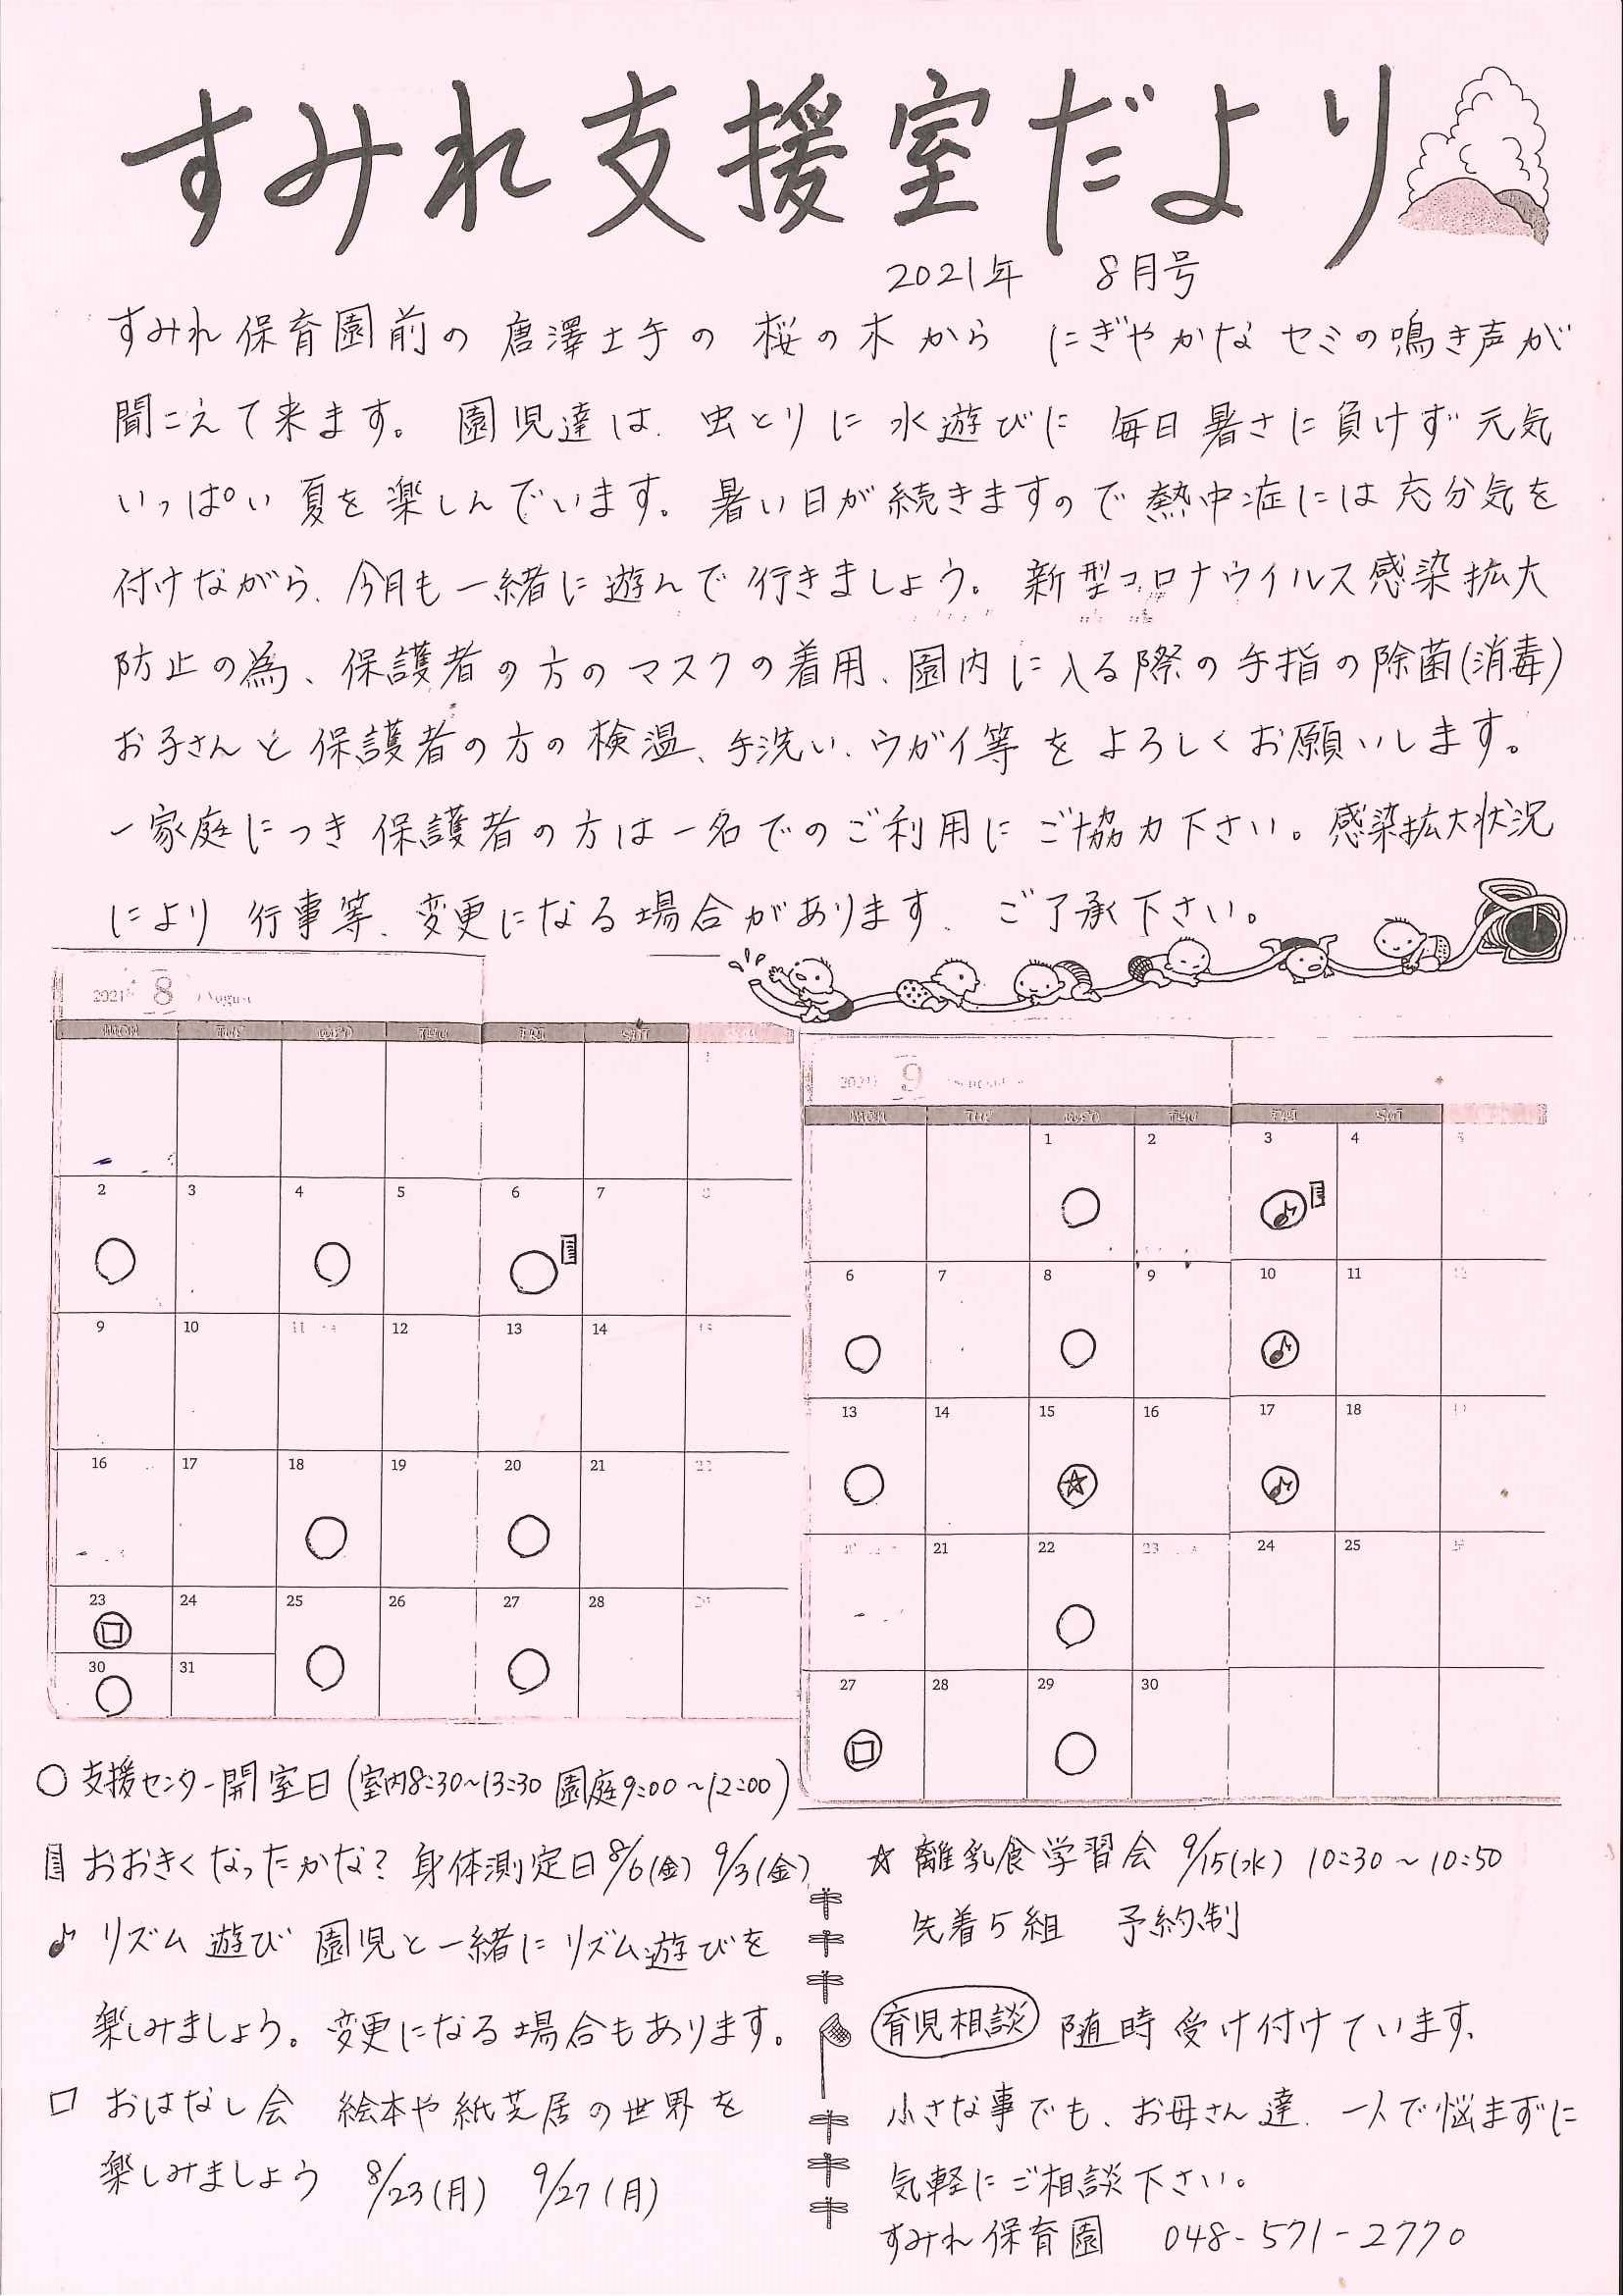 すみれ支援室だより
2021年 8月号
すみれ保育園前の 唐澤土手の 桜の木から にぎやかな セミの鳴き声が
聞こえて来ます。 園児達は、虫とりに 水遊びに 毎日暑さに負けず 元気
いっぱい 夏を楽しんでいます。 暑い日が続きますので 熱中症には充分気を
付けながら、今月も一緒に遊んで行きましょう。 新型コロナウイルス感染拡大
防止の為、保護者の方のマスクの着用、園内に入る際の手指の除菌(消毒)
お子さんと保護者の方の検温、手洗い、ウガイ等をよろしくお願いします。
一家庭につき保護者の方は一名でのご利用にご協力下さい。感染拡大状況
により 行事等、変更になる場合があります、 ご了承下さい。
2021 8 August
MON TUE WED THU FRI SAT
1
2 3 4 5 6 7 8
9 10 11 12 13 14 15
16 17 18 19 20 21 22
23 24 25 26 27 28 29
30 31
2021 9
MON TUE WED THU FRI SAT
1 2 3 4 5
6 7 8 9 10 11 12
13 14 15 16 17 18 19
20 21 22 23 24 25 26
27 28 29 30
○ 支援センター開室日 (室内8:30~13:30 園庭9:00~12:00)
おおきくなったかな? 身体測定日 8/6(金) 9/3(金)
♪ リズム遊び 園児と一緒にリズム遊びを
楽しみましょう。変更になる場合もあります。
□ おはなし会 絵本や紙芝居の世界を
楽しみましょう 8/23(月) 9/27(月)
☆ 離乳食学習会 9/15(水) 10:30~10:50
先着5組 予約制
育児相談 随時受け付けています、
小さな事でも、お母さん達、一人で悩まずに
気軽にご相談下さい。
すみれ保育園 048-571-2770